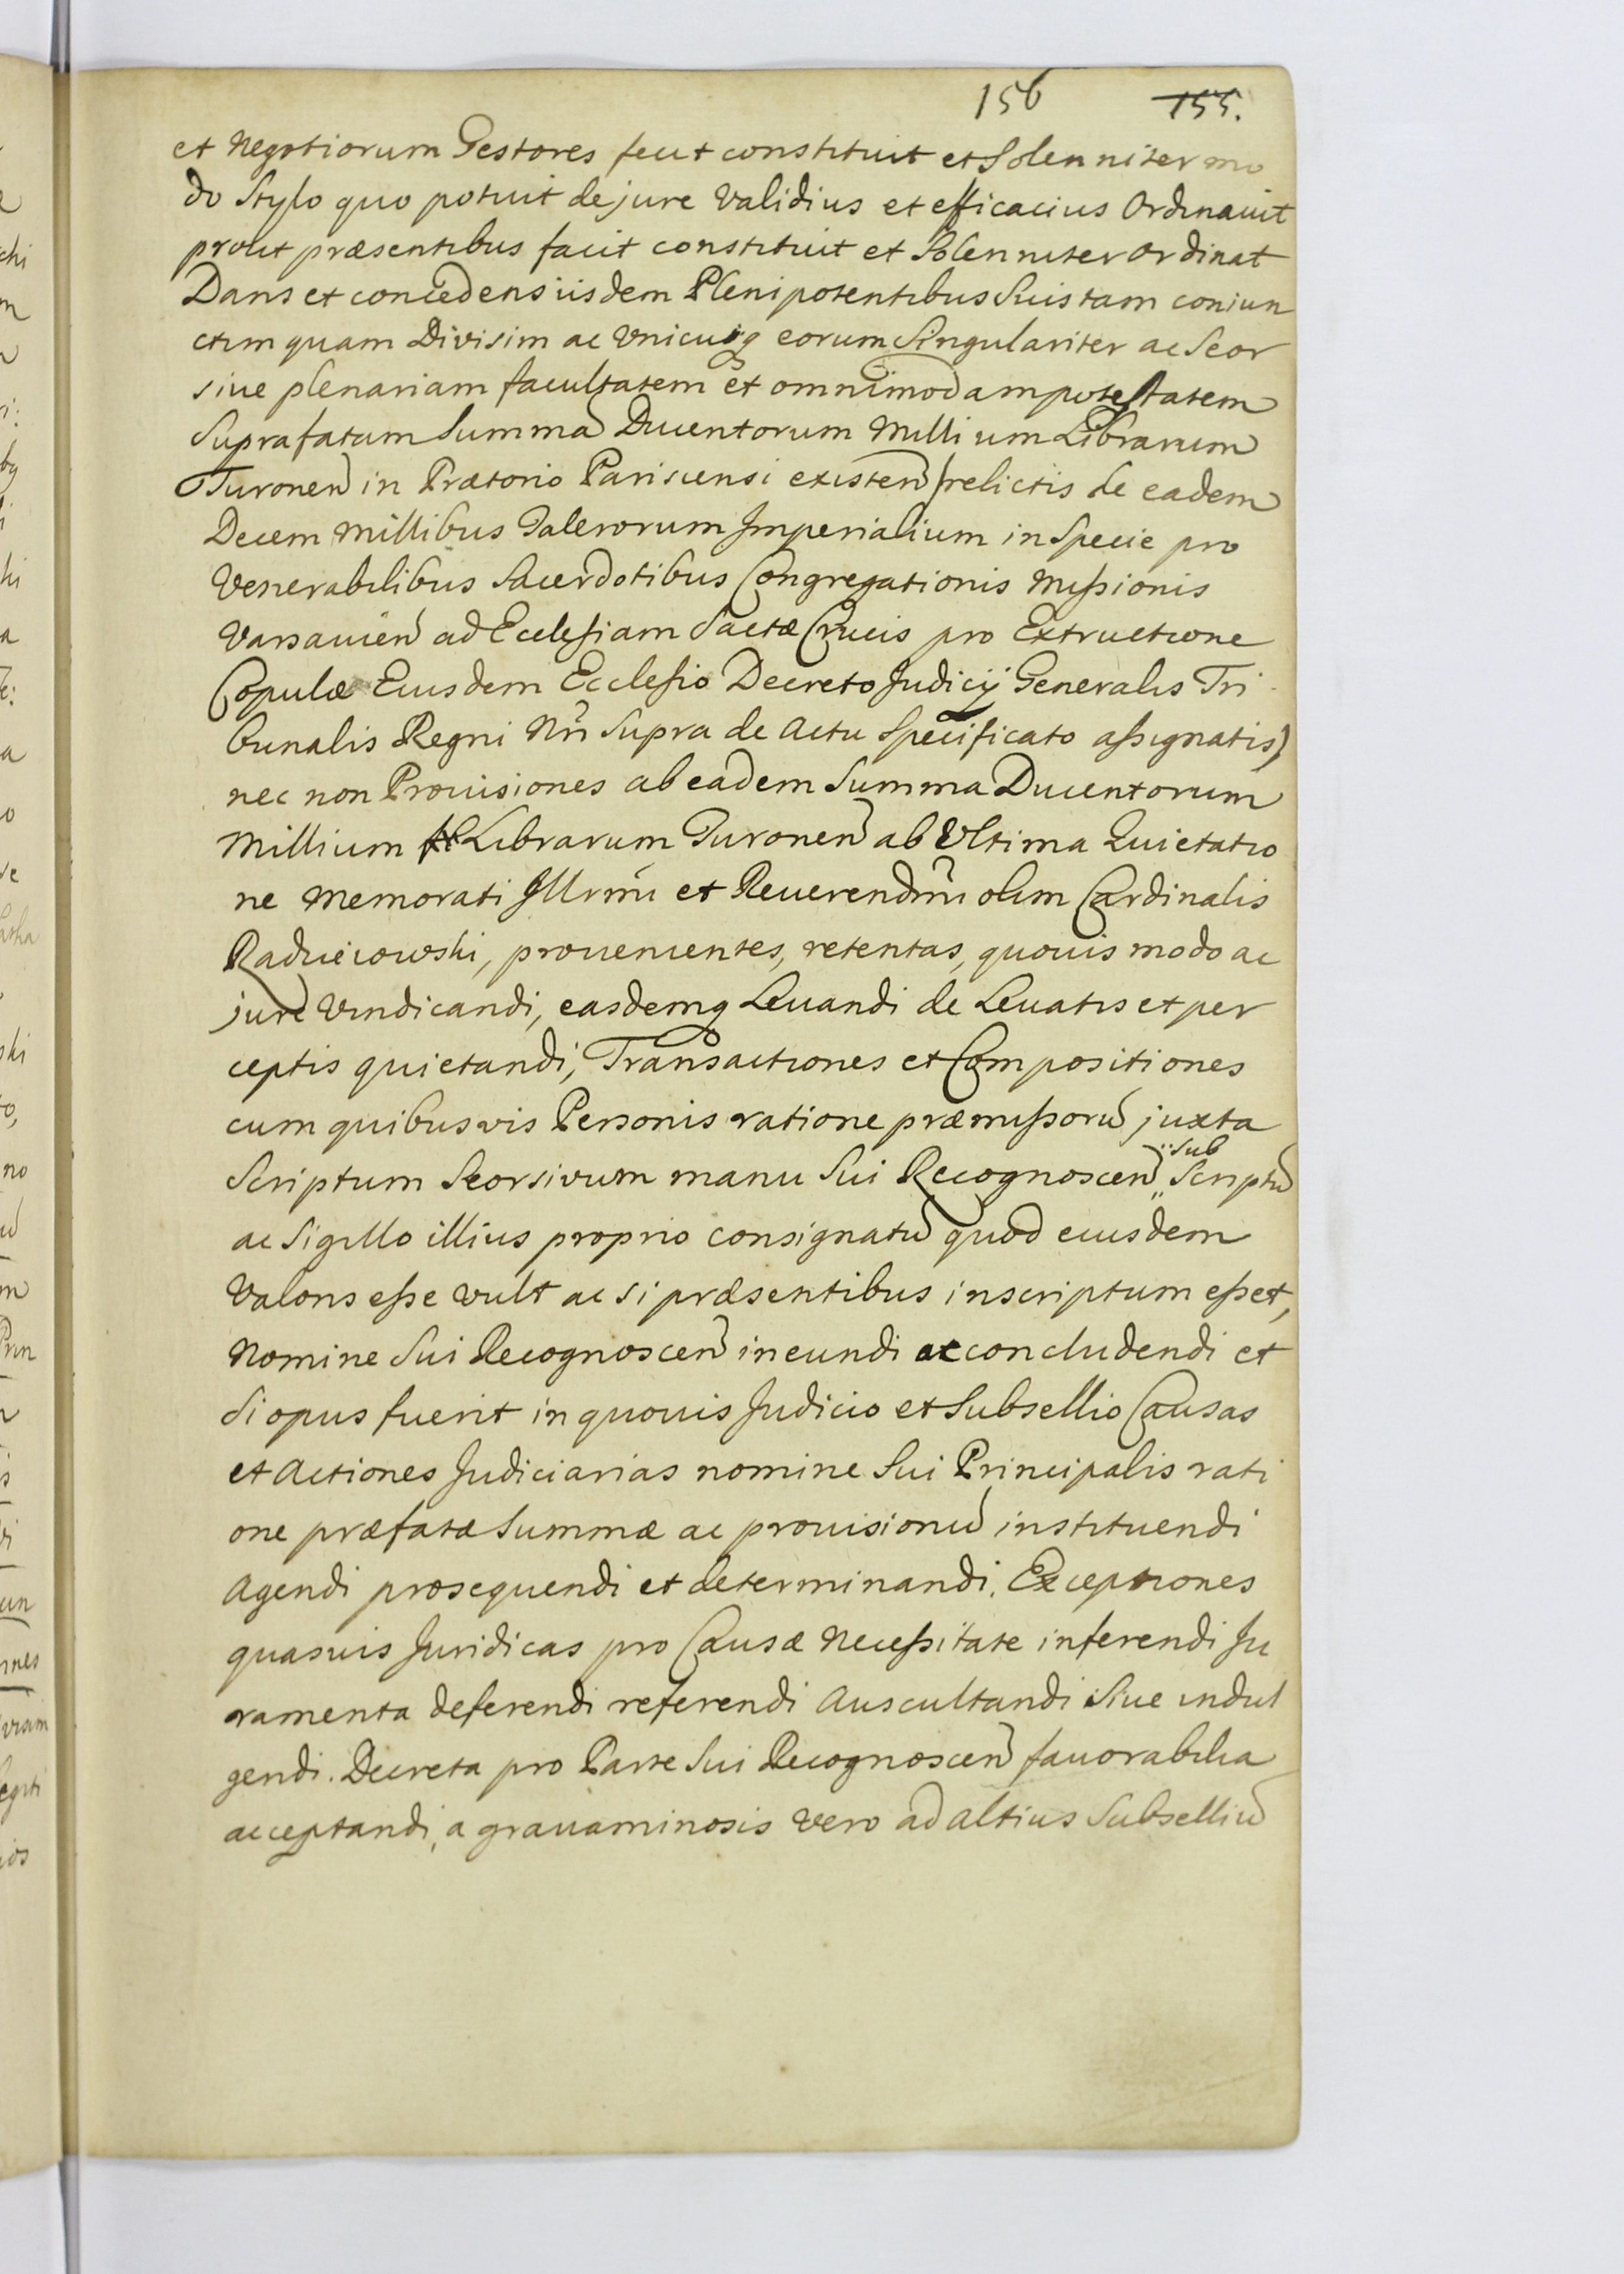 156 155.
et Negotiorum Gestores fecit constituit et Solenniter mo
do Stylo quo potuit de jure Validius et efficacius Ordinauit
prout præsentibus facit constituit et Solenniter Ordinat
Dans et concedens iisdem Plenipotentibus Suis tam coniun
ctim quam Divisim ac Vnicuiq eorum Singulariter ac Seor
siue plenariam facultatem et omnimodam potestatem
Suprafatam Summã Ducentorum Millium Librarum
Turoneñ in Prætorio Parisiensi existeñ (relictis de eadem
Decem Millibus Talerorum Imperialium in Specie pro
Venerabilibus Sacerdotibus Congregationis Missionis
Varsauieñ ad Ecclesiam Sactæ Crucis pro Extructione
Copulæ Eiusdem Ecclesio Decreto Judicij Generalis Tri
bunalis Regni Nri Supra de Actu Specificato assignatis)
nec non Prouisiones ab eadem Summa Ducentorum
Millium Librarum Turoneñ ab Vltima Quietatio
ne Memorati Illrmi et Reuerendmi olim Cardinalis
Radzieiowski, prouenientes, retentas, quouis modo ac
jure Vindicandi, easdemq Leuandi de Leuatis et per
ceptis quietandi, Transactiones et Compositiones
cum quibusvis Personis ratione præmissorũ juxta
Scriptum Seorsivum manu Sui Recognosceñ Sub Scriptũ
ac Sigillo illius proprio consignatũ quod eiusdem
Valoris esse vult ac si præsentibus inscriptum esset,
Nomine Sui Recognosceñ ineundi ac concludendi et
Si opus fuerit in quouis Judicio et Subsellio Causas
et Actiones Judiciarias nomine Sui Principalis rati
one præfatæ Summæ ac prouisionũ instituendi
Agendi prosequendi et determinandi. Exceptiones
quasuis Juridicas pro Causæ Necessitate inferendi Ju
ramenta deferendi referendi Auscultandi Siue indul
gendi. Decreta pro Parte Sui Recognosceñ fauorabilia
acceptandi, a grauaminosis vero ad altius Subselliũ